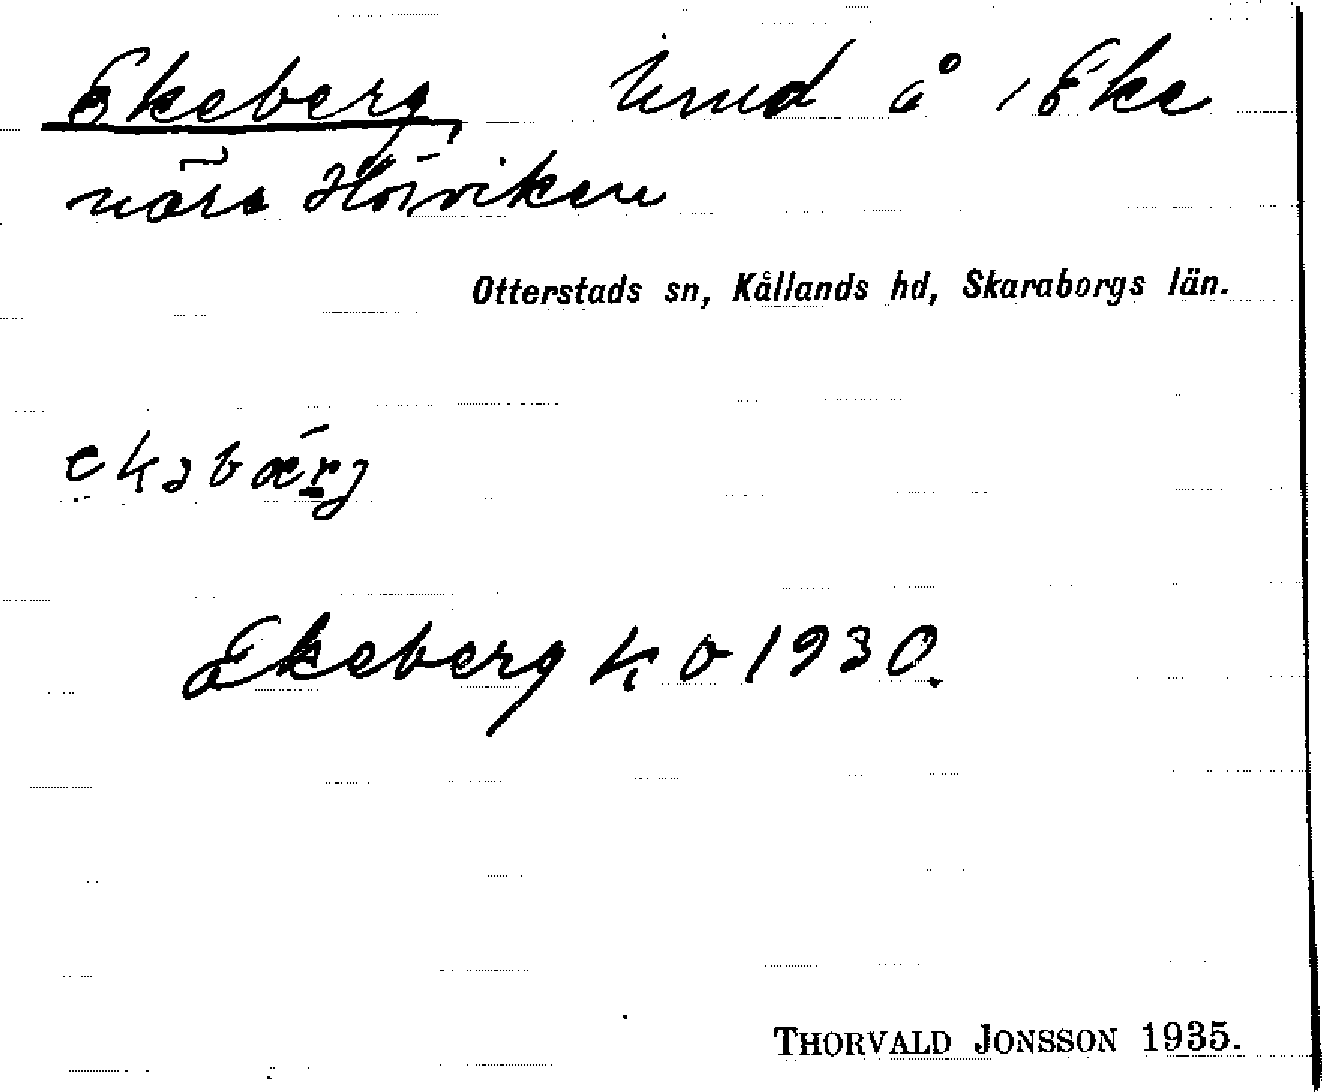 Ekeberg, lund å 1 Eke
nära Hörviken
Otterstads sn, Kållands hd, Skaraborgs län.
ekəbærj
Ekeberg k o 1930.
THORVALD JONSSON 1935.